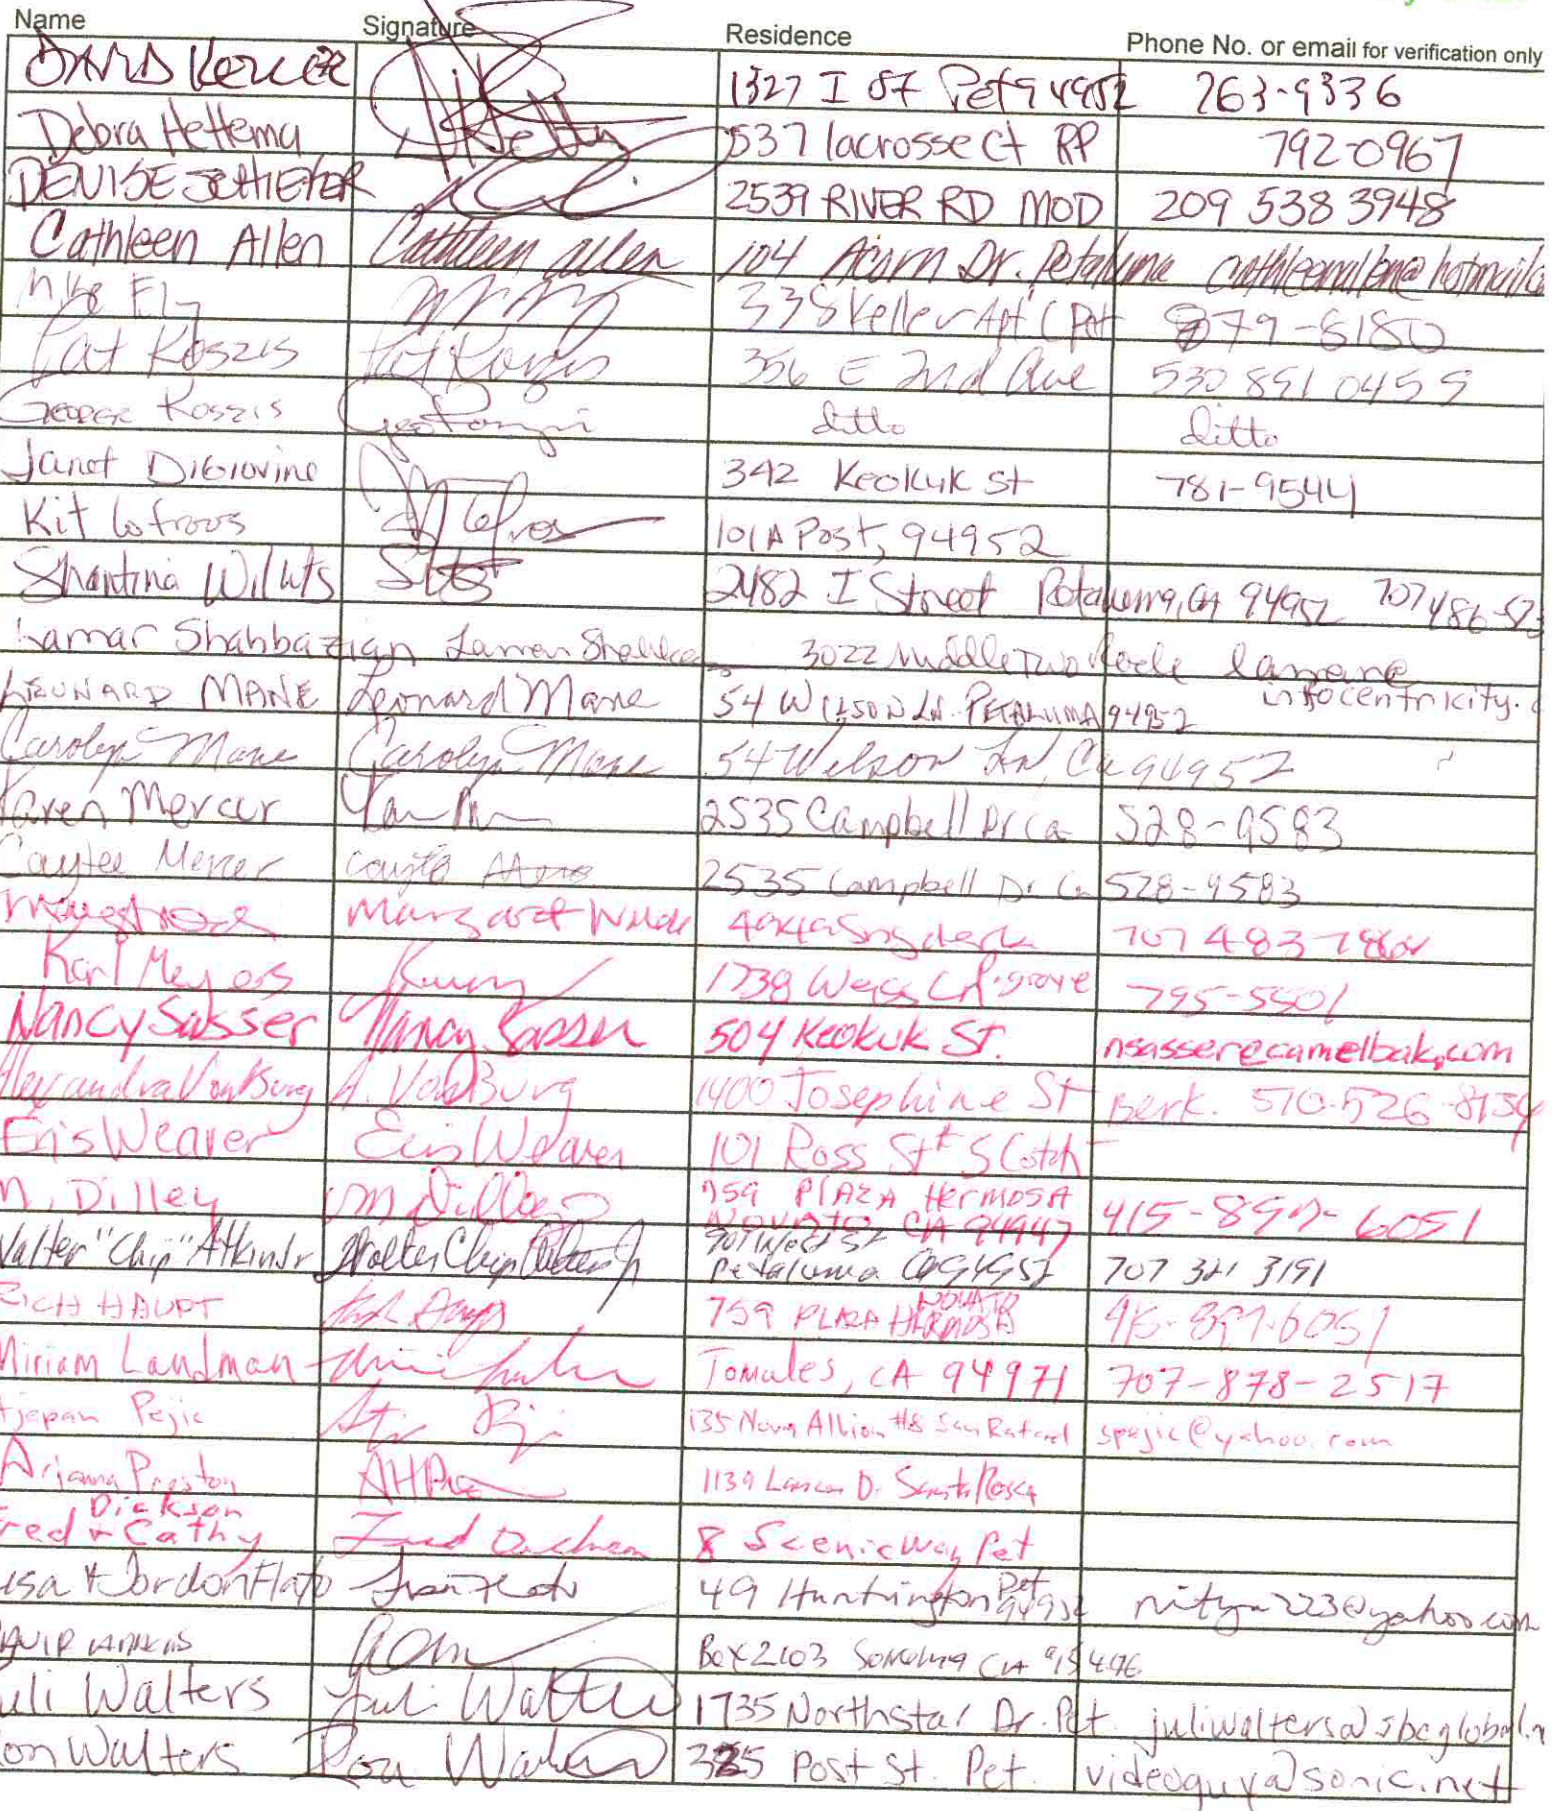 Name Signature Residence Phone No. or email for verification only
1327 I St Pet 94952 263-9336
Debra Hettema 537 lacrosse Ct RP 792-0967
DENISE 2539 RIVER RD MOD 209 538 3948
Cathleen Allen Cathleen Allen 104 Acorn Dr. Petaluma
338 Keller Apt C Pet 879-6180
Pat Koszis Pat Koszis 356 E 2nd Ave 530 891 0455
George Koszis ditto ditto
Janet DiGiovine 342 Keokuk St 781-9544
Kit Lofroos 101A Post, 94952
Shantina Willits 2482 I Street Petaluma, CA 94952 707 486-52
Lamar Shahbazian 3022 Middle Two Rock
LEONARD MANE Leonard Mane 54 WILSON LN. PETALUMA 94952 infocentricity.
Carolyn Mane Carolyn Mane 54 Wilson LN, Ca 94952
Karen Mercer 2535 Campbell Dr Ca 528-9583
Caytee Mercer 2535 Campbell Dr Ca 528-9583
Margaret 707 483
Karl Meyers 1738 Weiss 795-5501
Nancy Sasser Nancy Sasser 504 Keokuk St. nsasser@camelbak.com
Alexandra VonBurg A. VonBurg 1400 Josephine St Berk. 510-526-8134
Eris Weaver Eris Weaver 101 Ross St # 5 Cotati
M. Dilley M Dilley 759 PLAZA HERMOSA NOVATO, CA 94947 415-897-6051
Walter "Chip" Atkin Jr Petaluma CA 94952 707 321 3191
RICH HAUPT 759 PLAZA HERMOSA NOVATO 415-897-6051
Miriam Landman Tomales, CA 94971 707-878-2517
tjepan Pejic 135 Nova Albion #8 San Rafael spejic@yahoo.com
Arianna Preston 1139 Santa Rosa
red & Cathy Dickson 8 Scenic Way Pet
isa & Jordon Flato 49 Huntington Pet 94952 nitya223@yahoo.com
Box 2103 Sonoma CA 95476
uli Walters Juli Walters 1735 Northstar Dr. Pet. juliwalters@sbcglobal.n
on Walters Ron Walters 325 Post St. Pet. videoguy@sonic.net